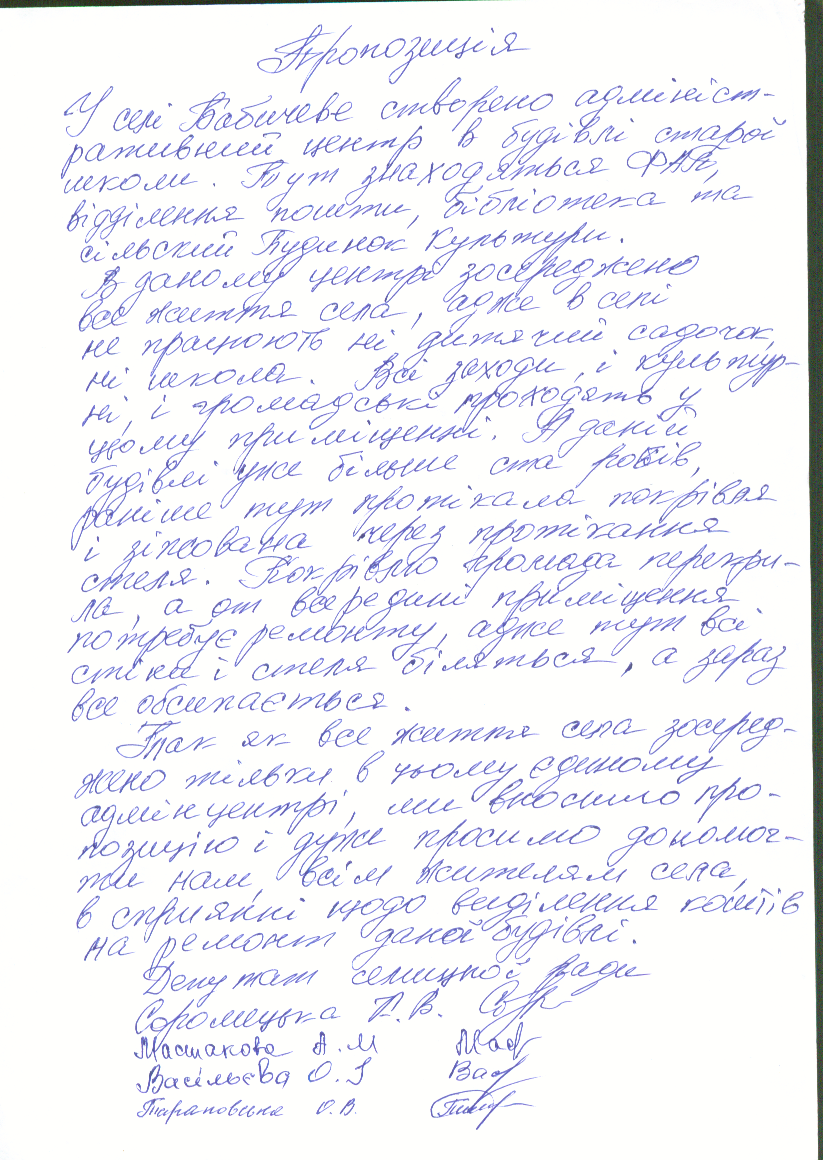 Пропозиція
У селі Бабичеве створено адмініст-
ративний центр в будівлі старої
школи. Тут знаходяться ФАП,
відділення пошти, бібліотека та
сільский Будинок культури.
В даному центрі зосереджено
все життя села, адже в селі
не працюють ні дитячий садочок,
ні школа. Всі заходи, і культур-
ні, і громадські проходять у
цьому приміщенні. А даній
будівлі уже більше ста років,
раніше тут протікала покрівля
і зіпсована через протікання
стеля. Покрівлю громада перекри-
ла, а от всередині приміщення
потребує ремонту, адже тут всі
стіни і стеля біляться, а зараз
все обсипається.
Так як все життя села зосеред-
жено тільки в цьому єдиному
адмінцентрі, ми вносимо про-
позицію і дуже просимо допомог-
ти нам, всім жителям села,
в сприянні щодо виділення коштів
на ремонт даної будівлі.
Депутат селищної ради
В.
А. М
Васільєва О. І
О. В.